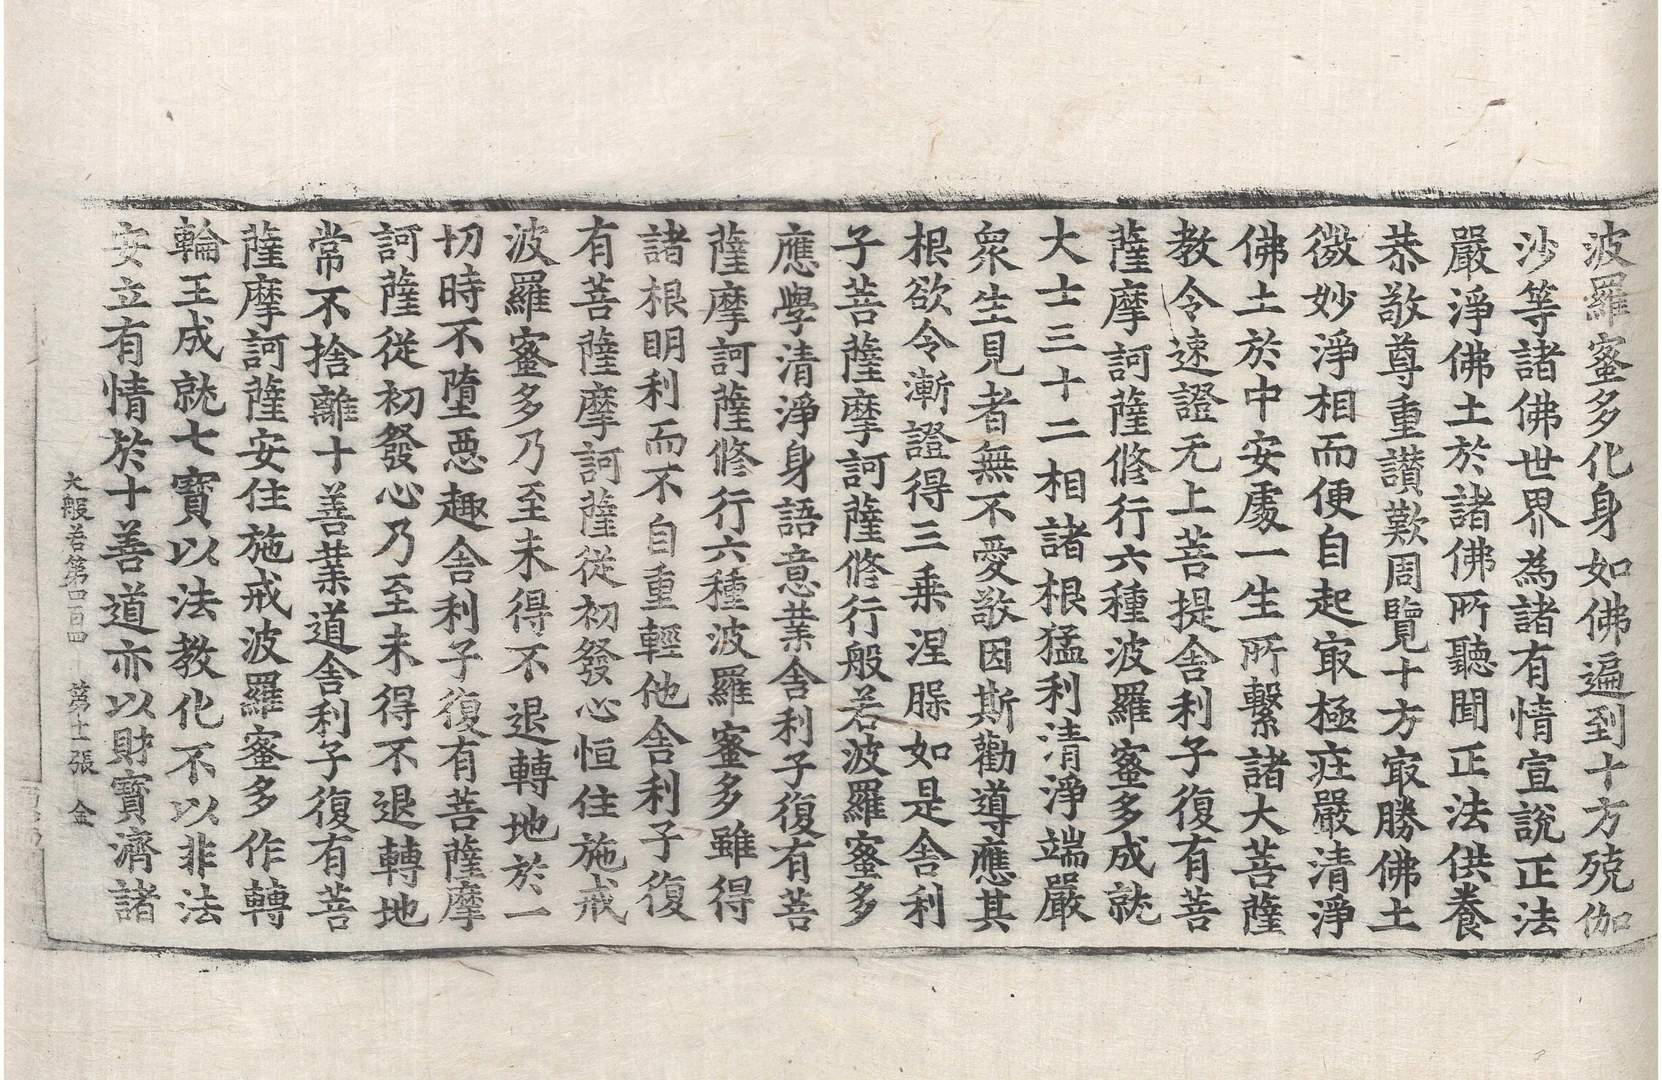 波羅蜜多化身如佛遍到十方殑伽
沙等諸佛世界為諸有情宣說正法
嚴淨佛土於諸佛所聽聞正法供養
恭敬尊重讚歎周覽十方㝡勝佛土
微妙淨相而便自起㝡極莊嚴清淨
佛土於中安處一生所繫諸大菩薩
教令速證无上菩提舍利子復有菩
薩摩訶薩修行六種波羅蜜多成就
大士三十二相諸根猛利清淨端嚴
衆生見者無不愛敬因斯勸導應其
根欲令漸證得三乗涅槃如是舍利
子菩薩摩訶薩修行般若波羅蜜多
應學清淨身語意業舍利子復有菩
薩摩訶薩修行六種波羅蜜多雖得
諸根明利而不自重輕他舍利子復
有菩薩摩訶薩從初發心恒住施戒
波羅蜜多乃至未得不退轉地於一
切時不墮惡趣舍利子復有菩薩摩
訶薩從初發心乃至未得不退轉地
常不捨離十善業道舍利子復有菩
薩摩訶薩安住施戒波羅蜜多作轉
輪王成就七寶以法教化不以非法
安立有情於十善道亦以財寶濟諸
大般若第四百四 第十一張 金